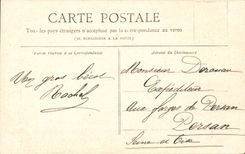 CARTE POSTALE
Tous les pays étrangers n'acceptent pas la correspondance au verso
(SE RENSEIGNER A LA POSTE)
Partie réservée à la Correspondance
Adresse du Destinataire
Un gros bécot
Rachel
Monsieur
Expéditeur
Aux forges de Persan
Persan
Seine et Oise